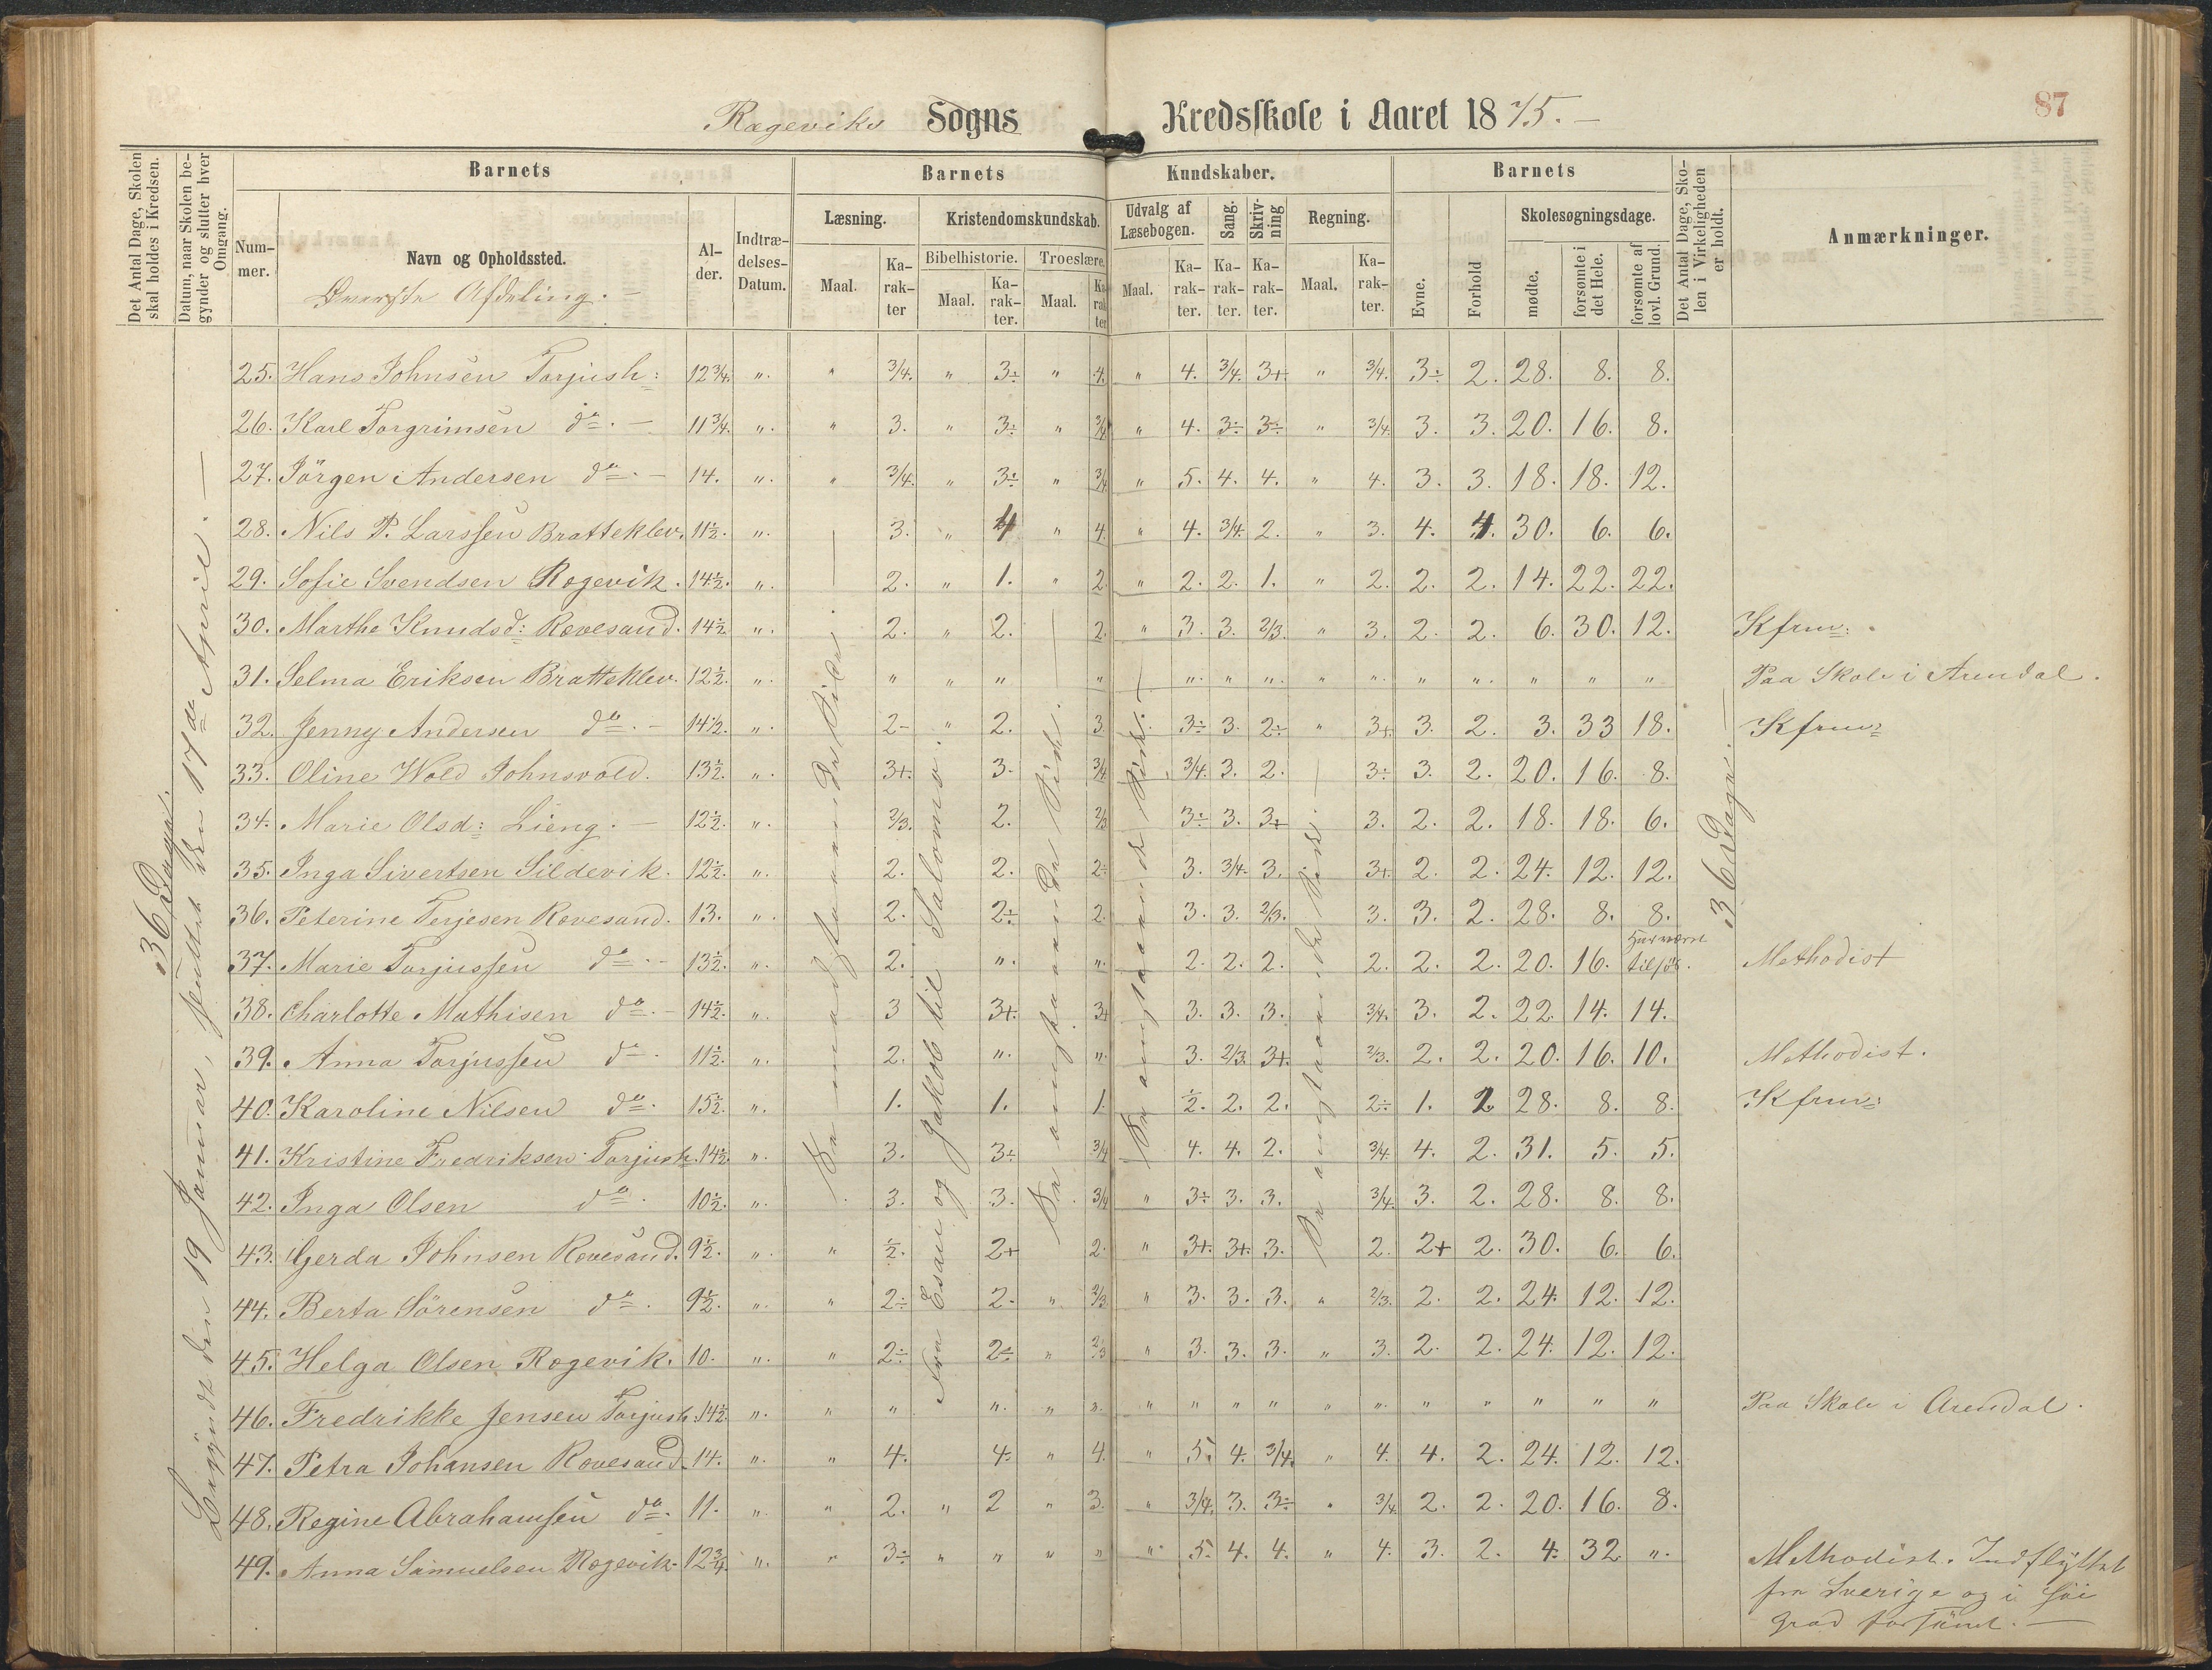 87
Rægeviks Sogns Kredsskole i Aaret 1875. —
Det Antal Dage, Skolen skal holdes i Kredsen.
Datum, naar Skolen begynder og slutter hver Omgang.
Barnets
Barnets Kundskaber.
Barnets
Det Antal Dage, Skolen i Virkeligheden er holdt.
Anmærkninger.
Nummer.
Navn og Opholdssted.
Alder.
Indtrædelses-Datum.
Læsning.
Kristendomskundskab.
Udvalg af Læsebogen.
Sang.
Skrivning
Regning.
Evne.
Forhold
Skolesøgningsdage.
Bibelhistorie.
Troeslære.
Maal. Karakter Maal. Karakter. Maal. Karakter Maal. Karakter. Karakter. Karakter. Maal. Karakter.
mødte.
forsømte i det Hele.
forsømte af lovl. Grund.
Øverste Afdeling. —
36 Dage.
Begyndt den 19 Januar, sluttet den 17de April. —
Fra Esau og Jakob til Salomo.
36 Dage. —
25. Hans Johnsen Torjush: 12¾. ". " ¾. " 3÷ " 4. " 4. ¾. 3+ " ¾. 3÷ 2. 28. 8. 8.
26. Karl Torgrimsen do. — 11¾. ". " 3. " 3÷ " ¾ " 4. 3÷ 3÷ " ¾. 3. 3. 20. 16. 8.
27. Jörgen Andersen do. — 14. ". " ¾. " 3÷ " ¾ " 5. 4. 4. " 4. 3. 3. 18. 18. 12.
28. Nils P. Larssen Bratteklev. 11½. ". 3. " 4 " 4. " 4. ¾. 2. " 3. 4. 4. 30. 6. 6.
29. Sofie Svendsen Rægevik. 14½. ". 2. " 1. " 2. " 2. 2. 1. " 2. 2. 2. 14. 22. 22.
30. Marthe Knudsd: Rævesand. 14½ ". 2. " 2. 2. " 3. 3. 2/3. " 3. 2. 2. 6. 30. 12. Kfrm:
31. Selma Eriksen Bratteklev. 12½. ". " " " " ". " ". ". " ". " " " Paa Skole i Arendal.
32. Jenny Andersen do. — 14½. ". 2- " 2. 3. 3÷ 3. 2÷ " 3+ 3. 2. 3. 33 18. Kfrm:
33. Oline Wold Johnsvold. 13½. ". 3+. 3. ¾ ¾. 3. 2. 3÷ 3. 2. 20. 16. 8.
34. Marie Olsd: Lieng. — 12½. ". 2/3. 2. 2/3 3÷ 3. 3+ 3. 2. 2. 18. 18. 6.
35. Inga Sivertsen Sildevik. 12½. ". 2. 2. 2÷ 3. ¾. 3. 3+. 2. 2. 24. 12. 12.
36. Peterine Terjesen Rævesand. 13. ". 2. 2÷ 2. 3. 3. 2/3. 3. 3. 2. 28. 8. 8.
37. Marie Torjussen do. — 13½. ". 2. ". ". 2. 2. 2. 2. 2. 2. 20. 16. Methodist
38. Charlotte Mathisen do. — 14½. ". 3 3+. 3+ 3. 3. 3. ¾. 3. 2. 22. 14. 14.
39. Anna Torjussen do. 11½. ". 2. ". ". 3. 2/3. 3+. 2/3. 2. 2. 20. 16. 10. Methodist.
40. Karoline Nilsen do. 15½. ". 1. 1. 1. ½. 2. 2. 2÷ 1. 2 28. 8. 8. Kfrm:
41. Kristine Fredriksen Torjush. 14½. ". 3. 3÷ ¾ 4. 4. 2. ¾. 4. 2. 31. 5. 5.
42. Inga Olsen do. 10½. ". 3. 3. ¾ " 3÷ 3. 3. ¾. 3. 2. 28. 8. 8.
43. Gerda Johnsen Rævesand. 9½. ". " ½. 2+ 2. " 3+. 3+. 3. 2. 2+ 2. 30. 6. 6.
44. Berta Sörensen do. 9½. ". " 2÷ 2. " 2/3 " 3. 3. 3. " 2/3. 2. 2. 24. 12. 12.
45. Helga Olsen Rægevik. 10. ". " 2÷ 2÷ " 2/3 " 3. 3. 3. " 3. 2. 2. 24. 12. 12.
46. Fredrikke Jensen Torjush. 14½. ". " " ". " ". " " " " " ". " " " " " Paa Skole i Arendal.
47. Petra Johansen Rævesand. 14. ". " 4. 4. " 4. " 5. 4. ¾. " 4. 4. 2. 24. 12. 12.
48. Regine Abrahamsen do. 11. " " 2. " 2 " 3. " ¾. 3. 3÷ " ¾. 2. 2. 20. 16. 8.
49. Anna Samuelsen Rægevik. 12¾. ". " 3÷ " " " " ". 5. 4. 4. " 4. 3. 2. 4. 32 ". Methodist. Indflyttet
fra Sverige og i høi
Grad forsömt. —